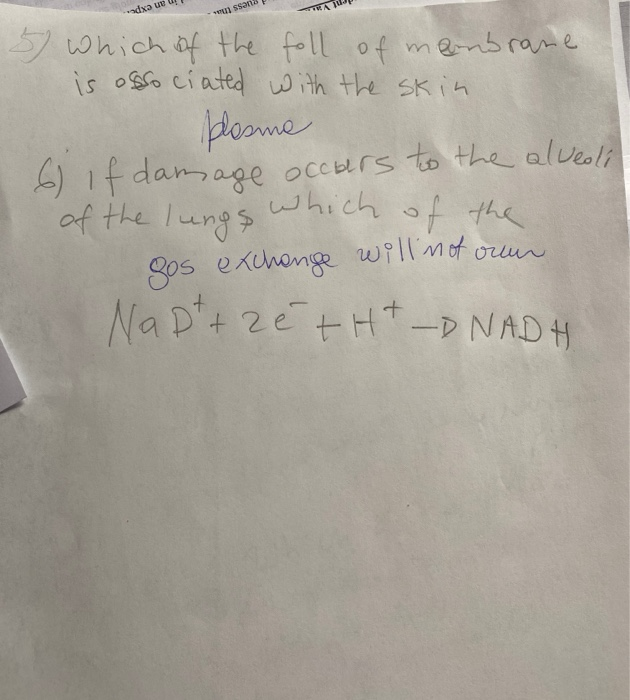 5) which of the foll of membrane
is associated with the skin
plasma
6) if damage occurs to the alveoli
of the lungs which of the
gas exchange will not occur
NaD⁺ + 2e⁻ + H⁺ → NADH